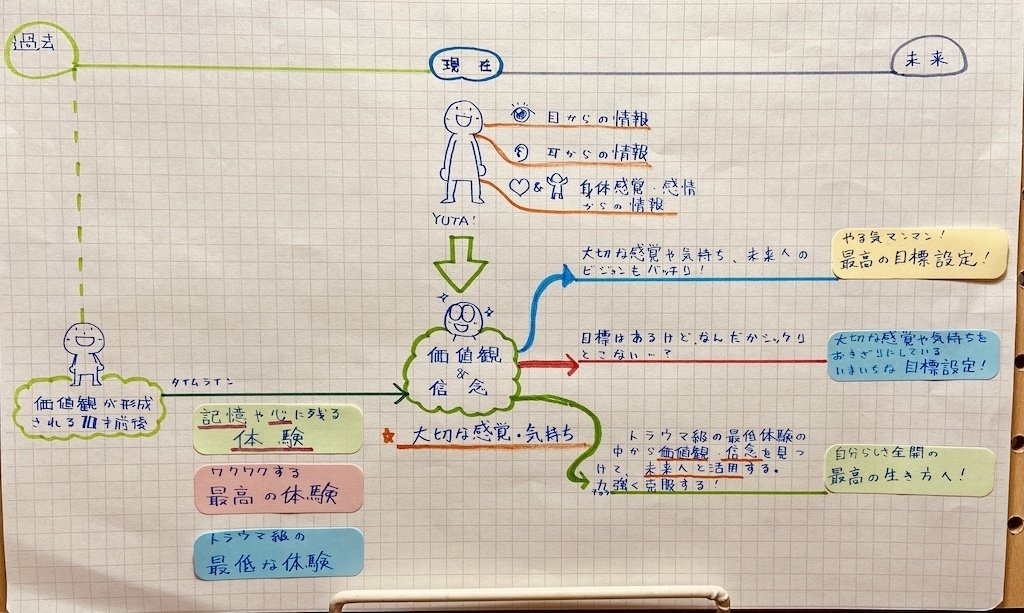 過去
現在
未来
目からの情報
耳からの情報
&
身体感覚・感情
からの情報
YUTA!
大切な感覚や気持ち、未来人の
ビジョンもバッチリ!
やる気マンマン!
最高の目標設定!
価値観
&
信念
目標はあるけど、なんだかシックリ
とこない…?
大切な感覚や気持ちを
おきざりにしている
いまいちな目標設定!
タイムライン
価値観が形成
される10才前後
記憶や心に残る
体験
大切な感覚・気持ち
トラウマ級の最低体験の
中から価値観・信念を見つ
けて、未来人と活用する。
力強く克服する!
自分らしさ全開の
最高の生き方へ!
ワクワクする
最高の体験
トラウマ級の
最低な体験